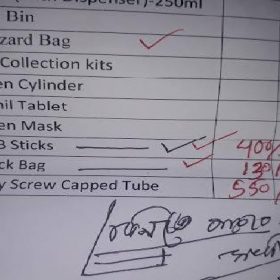 Dispenser)-250ml
Bin
zard Bag
Collection kits
en Cylinder
il Tablet
en Mask
B Sticks 400/
ck Bag 120/
y Screw Capped Tube 550/